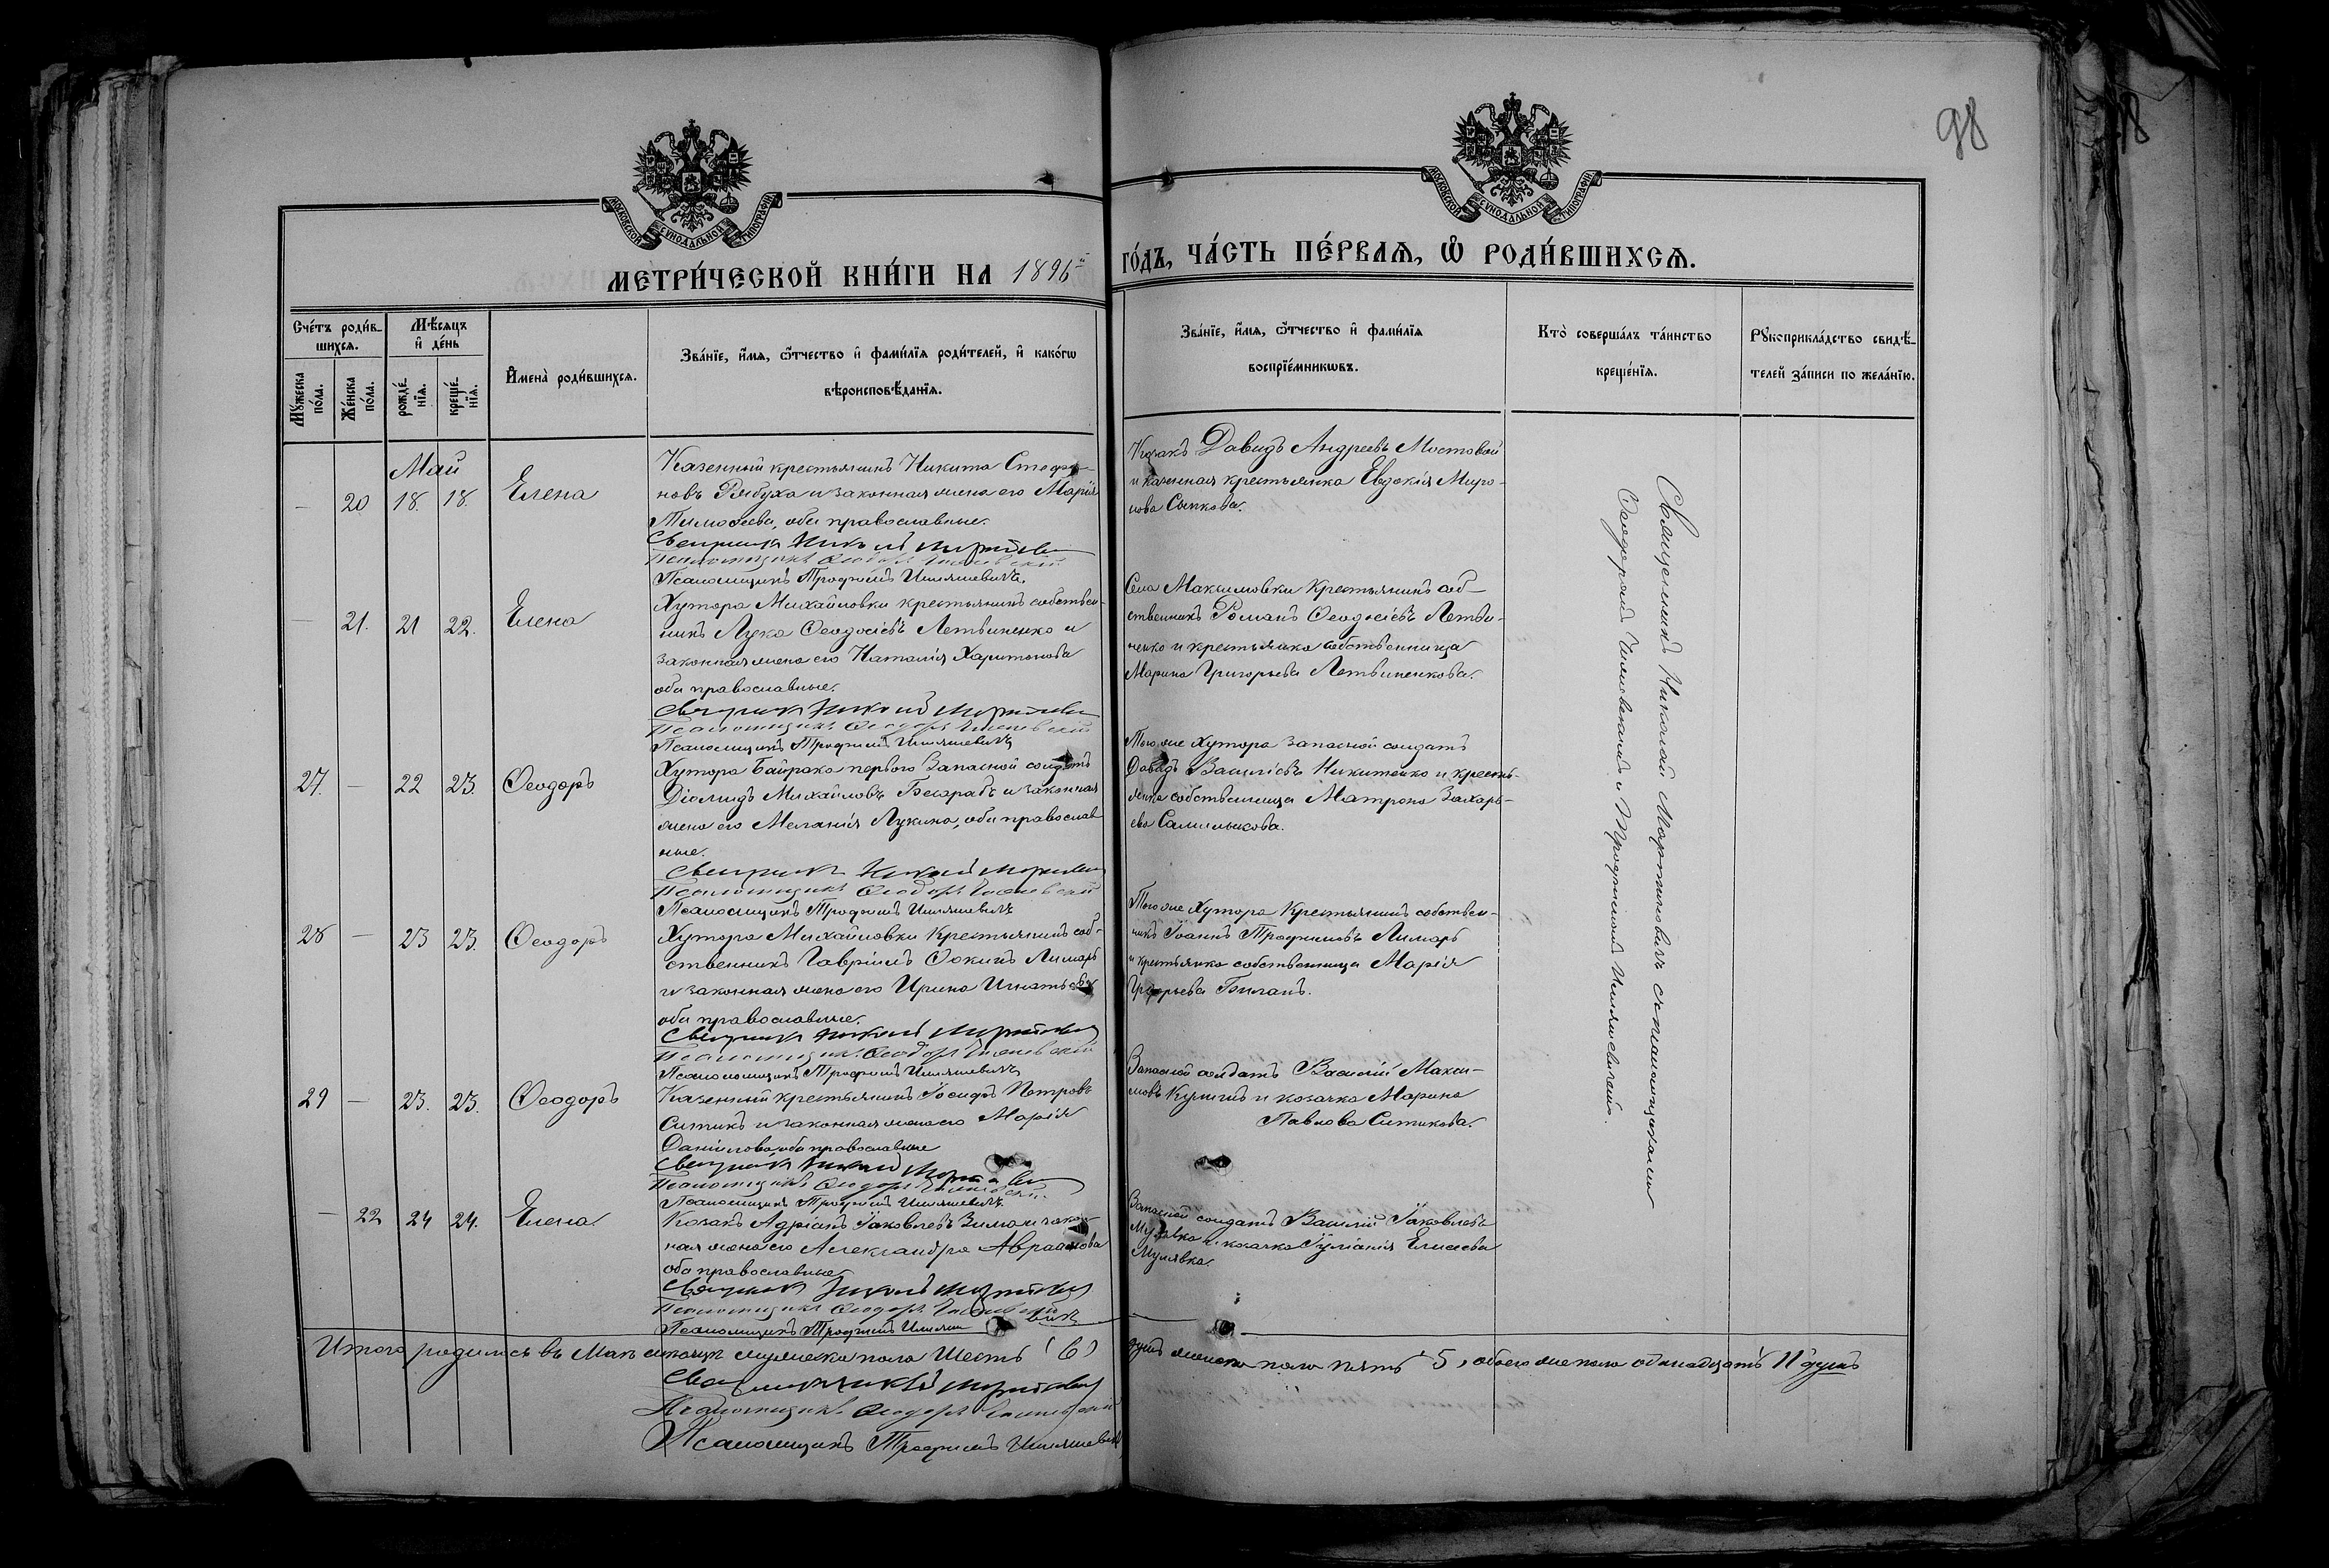 98
МОСКОВСКОЙ СѴНОДАЛЬНОЙ ТИПОГРАФІИ
МОСКОВСКОЙ СѴНОДАЛЬНОЙ ТИПОГРАФІИ
МЕТРИ́ЧЕСКОЙ КНИ́ГИ НА 1896й
ГО́ДЪ, ЧА́СТЬ ПЕ́РВАѦ, Ѡ҆ РОДИ́ВШИХСѦ.
Сче́тъ роди́в-
шихсѧ.
Мѣ́сѧцъ
и҆ де́нь
Мꙋ́жеска
по́ла.
Же́нска
по́ла.
рожде́-
нїѧ.
креще́-
нїѧ.
И҆мена̀ роди́вшихсѧ.
Зва́нїе, и҆́мѧ, ѻ҆́тчество и҆ фами́лїѧ роди́телей, и҆ како́гѡ
вѣроисповѣ́данїѧ.
Зва́нїе, и҆́мѧ, ѻ҆́тчество и҆ фами́лїѧ
воспрїе́мникѡвъ.
Кто̀ соверша́лъ та́инство
креще́нїѧ.
Рꙋкоприкла́дство свидѣ́-
телей за́писи по жела́нїю.
Май
— 20 18. 18. Елена
Казенный крестьянинъ Никита Стефа-
новъ Рябуха и законная жена его Марія
Тимоѳеева, оба православные.
Священникъ Николай Мартинович
Псаломщикъ Ѳеодоръ
Псаломщикъ Трофимъ Илляшевичъ
Козакъ Давидъ Андреевъ Мостовой
и казенная крестьянка Евдокія Миро-
нова Сынкова.
— 21. 21 22. Елена
Хутора Михайловки крестьянинъ собствен-
никъ Лука Ѳеодосіевъ Летвиненко и
законная жена его Наталія Харитонова
оба православные.
Священникъ Николай Мартинович
Псаломщикъ Ѳеодоръ
Псаломщикъ Трофимъ Илляшевичъ
Села Максимовки Крестьянинъ соб-
ственникъ Романъ Ѳеодосіевъ Летви-
ненко и крестьянка собственница
Марина Григорьева Летвиненкова.
27. — 22 23. Ѳеодоръ
Хутора Байрака перваго Запасной солдатъ
Діомидъ Михайловъ Бесарабъ и законная
жена его Меланія Лукина, оба православ-
ные.
Священникъ Николай Мартинович
Псаломщикъ Ѳеодоръ
Псаломщикъ Трофимъ Илляшевичъ
Того же Хутора Запасной солдатъ
Давидъ Василіевъ Никитенко и кресть-
янка собственница Матрона Захарь-
ева
28 — 23 23. Ѳеодоръ
Хутора Михайловки Крестьянинъ соб-
ственникъ Гавріилъ Ѳокинъ Лимарь
и законная жена его Ирина Игнатьева
оба православные.
Священникъ Николай Мартинович
Псаломщикъ Ѳеодоръ
Псаломщикъ Трофимъ Илляшевичъ
Того же Хутора Крестьянинъ собствен-
никъ Іоаннъ Трофимовъ Лимарь
и крестьянка собственница Марія
Григорьева Биланъ.
29 — 23. 23. Ѳеодоръ
Казенный крестьянинъ Іосифъ Петровъ
Ситикъ и законная жена его Марія
Даніилова оба православные
Священникъ Николай Мартинович
Псаломщикъ Ѳеодоръ
Псаломщикъ Трофимъ Илляшевичъ
Запасной солдатъ Василій Макси-
мовъ и козачка Марина
Павлова Ситикова.
— 22 24 24. Елена
Козакъ Адріанъ Іаковлевъ Зима и закон-
ная жена его Александра Авраамова
оба православные
Священникъ Николай Мартинович
Псаломщикъ Ѳеодоръ
Псаломщикъ Трофимъ Илляшевичъ
Запасной солдатъ Василій Іаковлевъ
Мулявка и козачка Іуліанія Елисеева
Мулявка.
Священникъ Николай Мартиновичъ съ псаломщиками
Ѳеодоромъ и Трофимомъ Илляшевичемъ.
Итого родилось въ Маѣ мѣсяцѣ мужеска пола Шесть (6)
душъ женска пола пять 5, обоего же пола одинадцать 11 душъ
Священникъ Николай Мартинович
Псаломщикъ Ѳеодоръ
Псаломщикъ Трофимъ Илляшевичъ